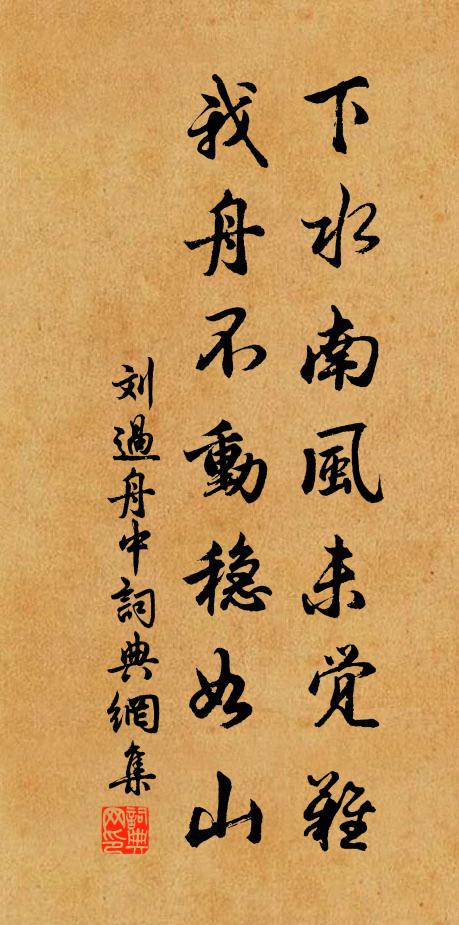 下水南風未觉難
我舟不動穏如山
刘過舟中詞典網集
詞典网印